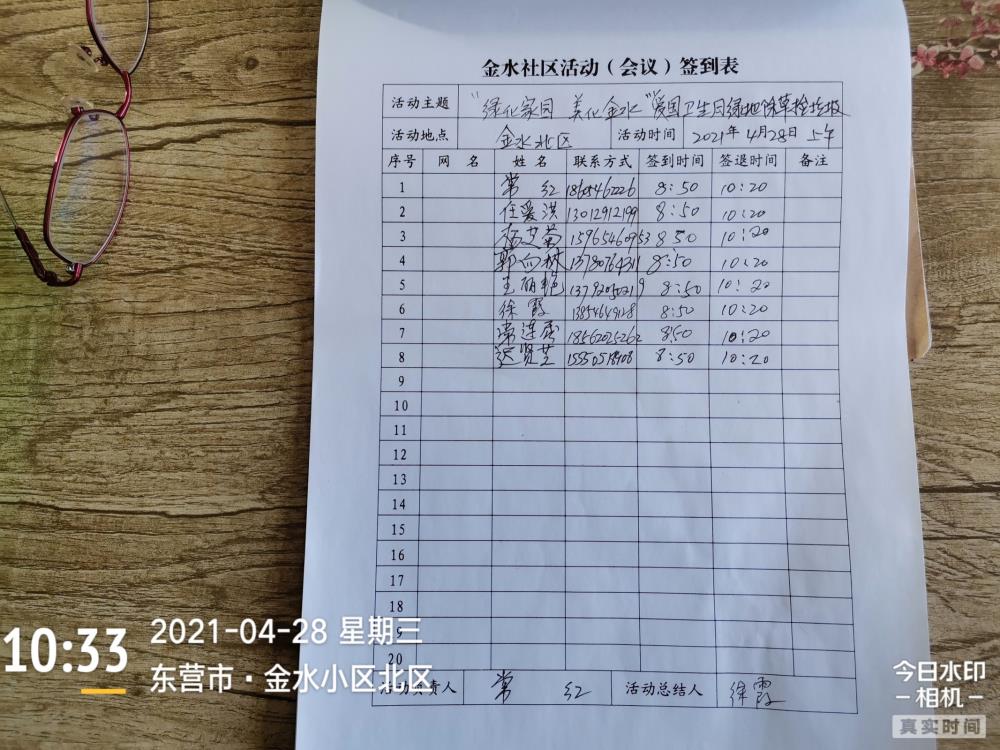 金水社区活动（会议）签到表
活动主题 "绿化家园 美化金水"爱国卫生日绿地除草捡垃圾
活动地点 金水北区 活动时间 2021年4月28日 上午
序号 网 名 姓 名 联系方式 签到时间 签退时间 备注
1 常 红 18605462226 8:50 10:20
2 任爱洪 13012912199 8:50 10:20
3 杨艾菊 15965460953 8:50 10:20
4 郭向林 13780764311 8:50 10:20
5 王丽艳 13792050219 8:50 10:20
6 徐霞 13854649128 8:50 10:20
7 常连秀 18562025262 8:50 10:20
8 迟贤芝 8:50 10:20
9
10
11
12
13
14
15
16
17
18
9
20
活动负责人 常 红 活动总结人 徐霞
10:33
2021-04-28 星期三
东营市·金水小区北区
今日水印
相机
真实时间